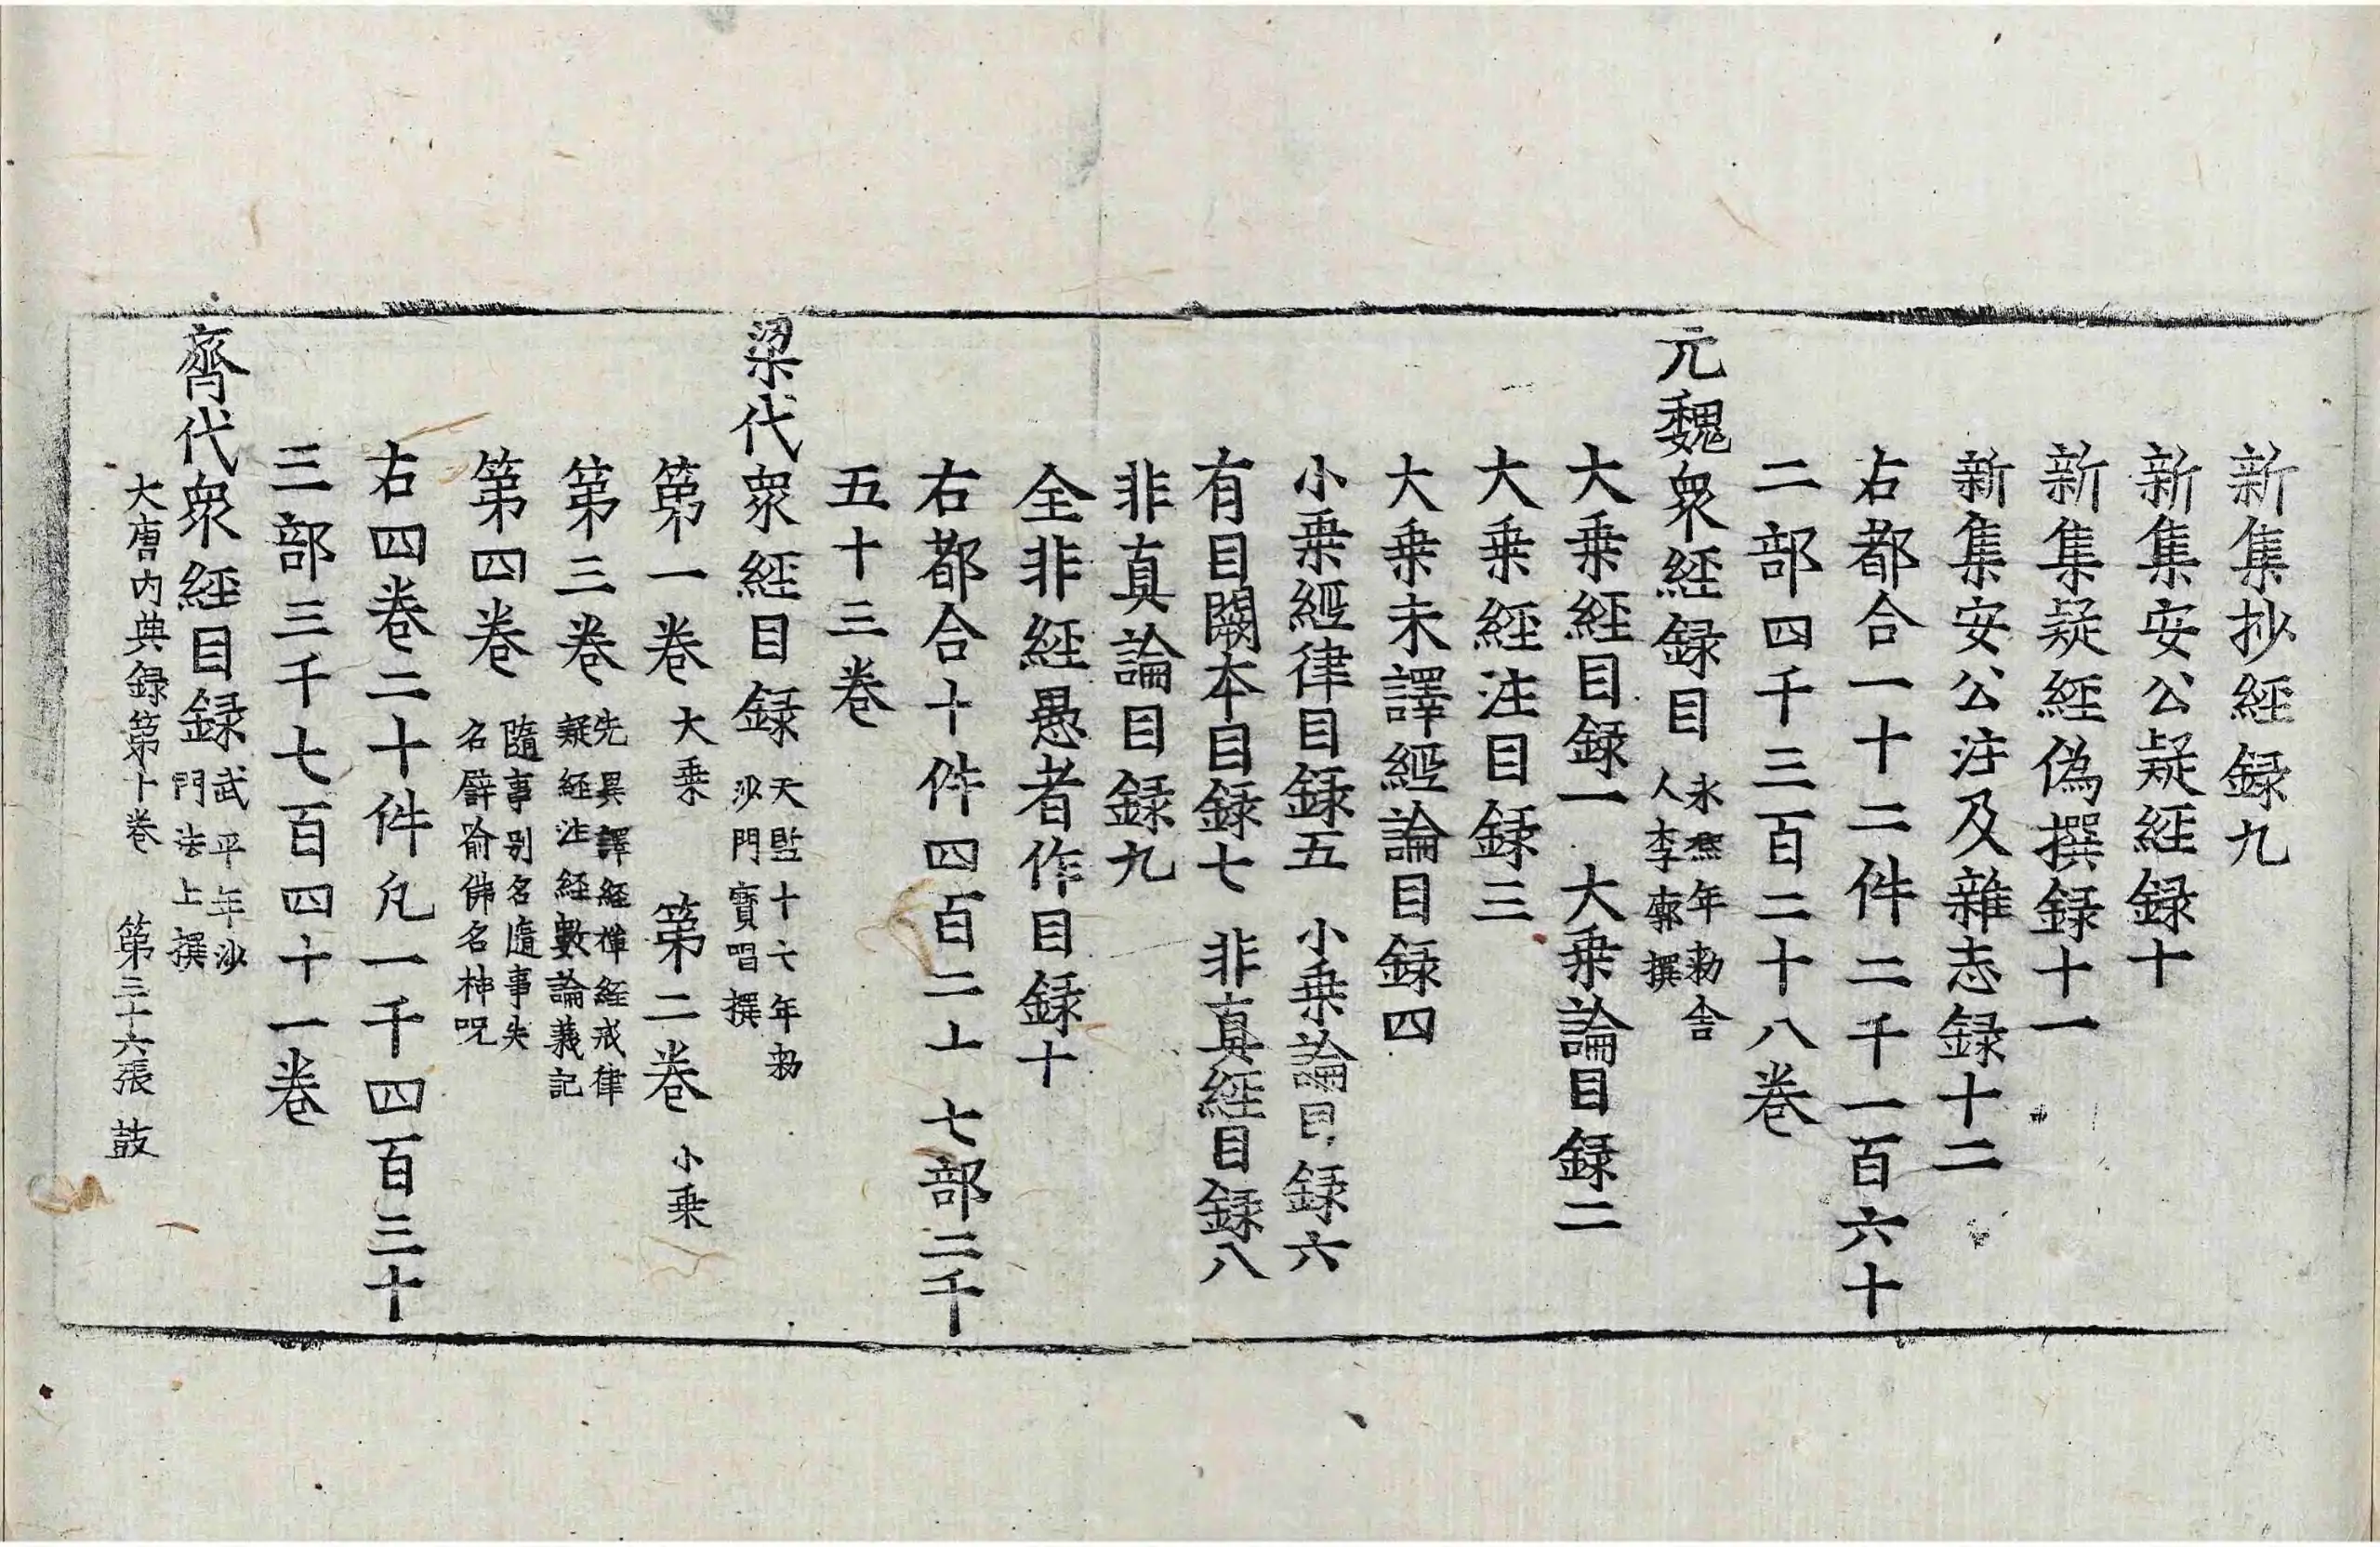 新集抄經録九
新集安公疑經録十
新集疑經偽撰録十一
新集安公注及雜志録十二
右都合一十二件二千一百六十
二部四千三百二十八卷
元魏衆經録目 永熈年勑舍人李廓撰
大乗經目録一 大乗論目録二
大乗經注目録三
大乗未譯經論目録四
小乗經律目録五 小乗論目録六
有目闕本目録七 非真經目録八
非真論目録九
全非經愚者作目録十
右都合十件四百二十七部二千
五十三卷
梁代衆經目録 天監十七年勑沙門寳唱撰
第一卷 大乗 第二卷 小乗
第三卷 先異譯經禪經戒律疑經注經數論義記
第四卷 隨事别名隨事失名譬喻佛名神呪
右四卷二十件凡一千四百三十
三部三千七百四十一卷
齊代衆經目録 武平年沙門法上撰
大唐内典録第十卷 第三十六張 鼓